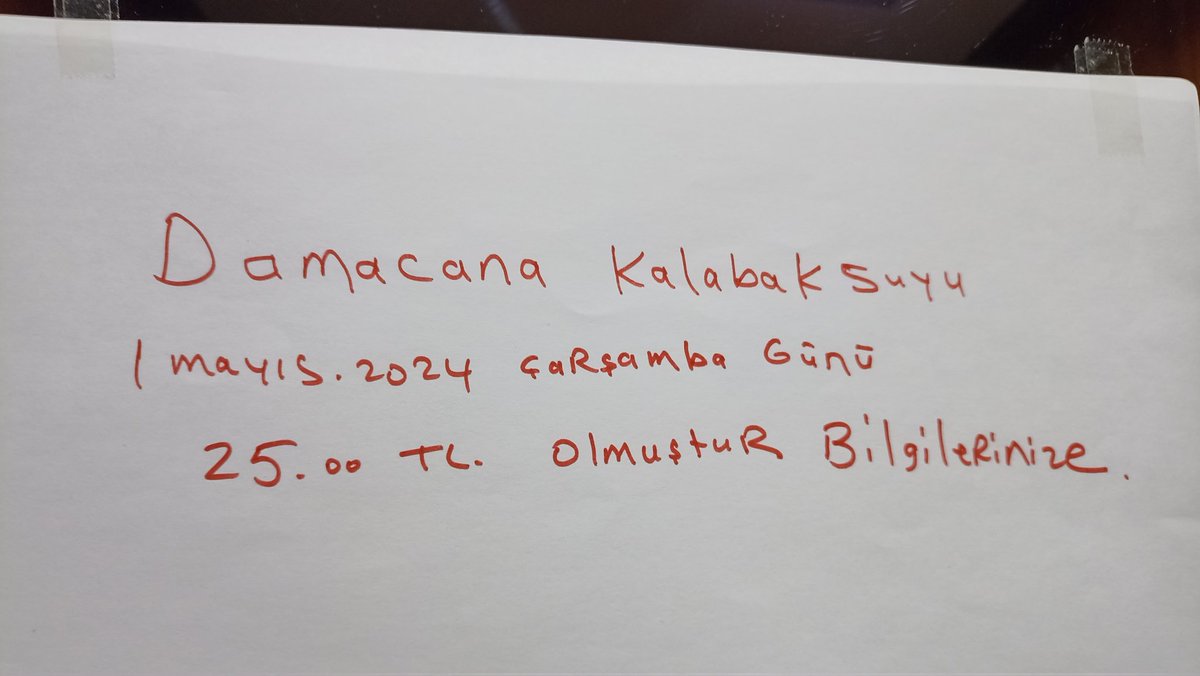 Damacana Kalabak suyu
1 mayıs.2024 çaRşamba Günü
25.00 TL. OlmuştuR BilgileRinize.